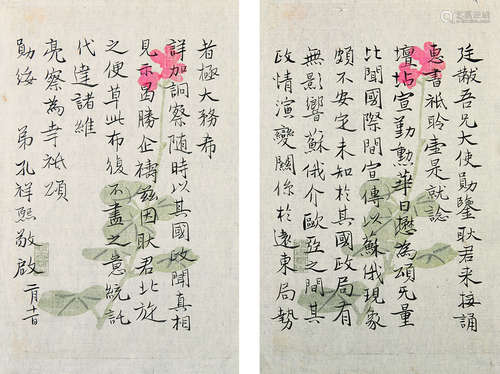 廷黻吾兄大使勛鑒耿君来接誦
惠書祗聆壹是就諗
壇坫宣勤勲華日懋為頌无量
比聞國際間宣傳以蘇俄現象
頗不安定未知於其國政局有
無影響蘇俄介歐亞之間其
政情演變關係於遠東局勢
者極大務希
詳加詗察随時以其國政聞真相
見示曷勝企禱兹因耿君北旋
之便草此布復不盡之意統託
代達諸維
亮察為幸祗頌
勛綏 弟孔祥熙敬啟 二月十日